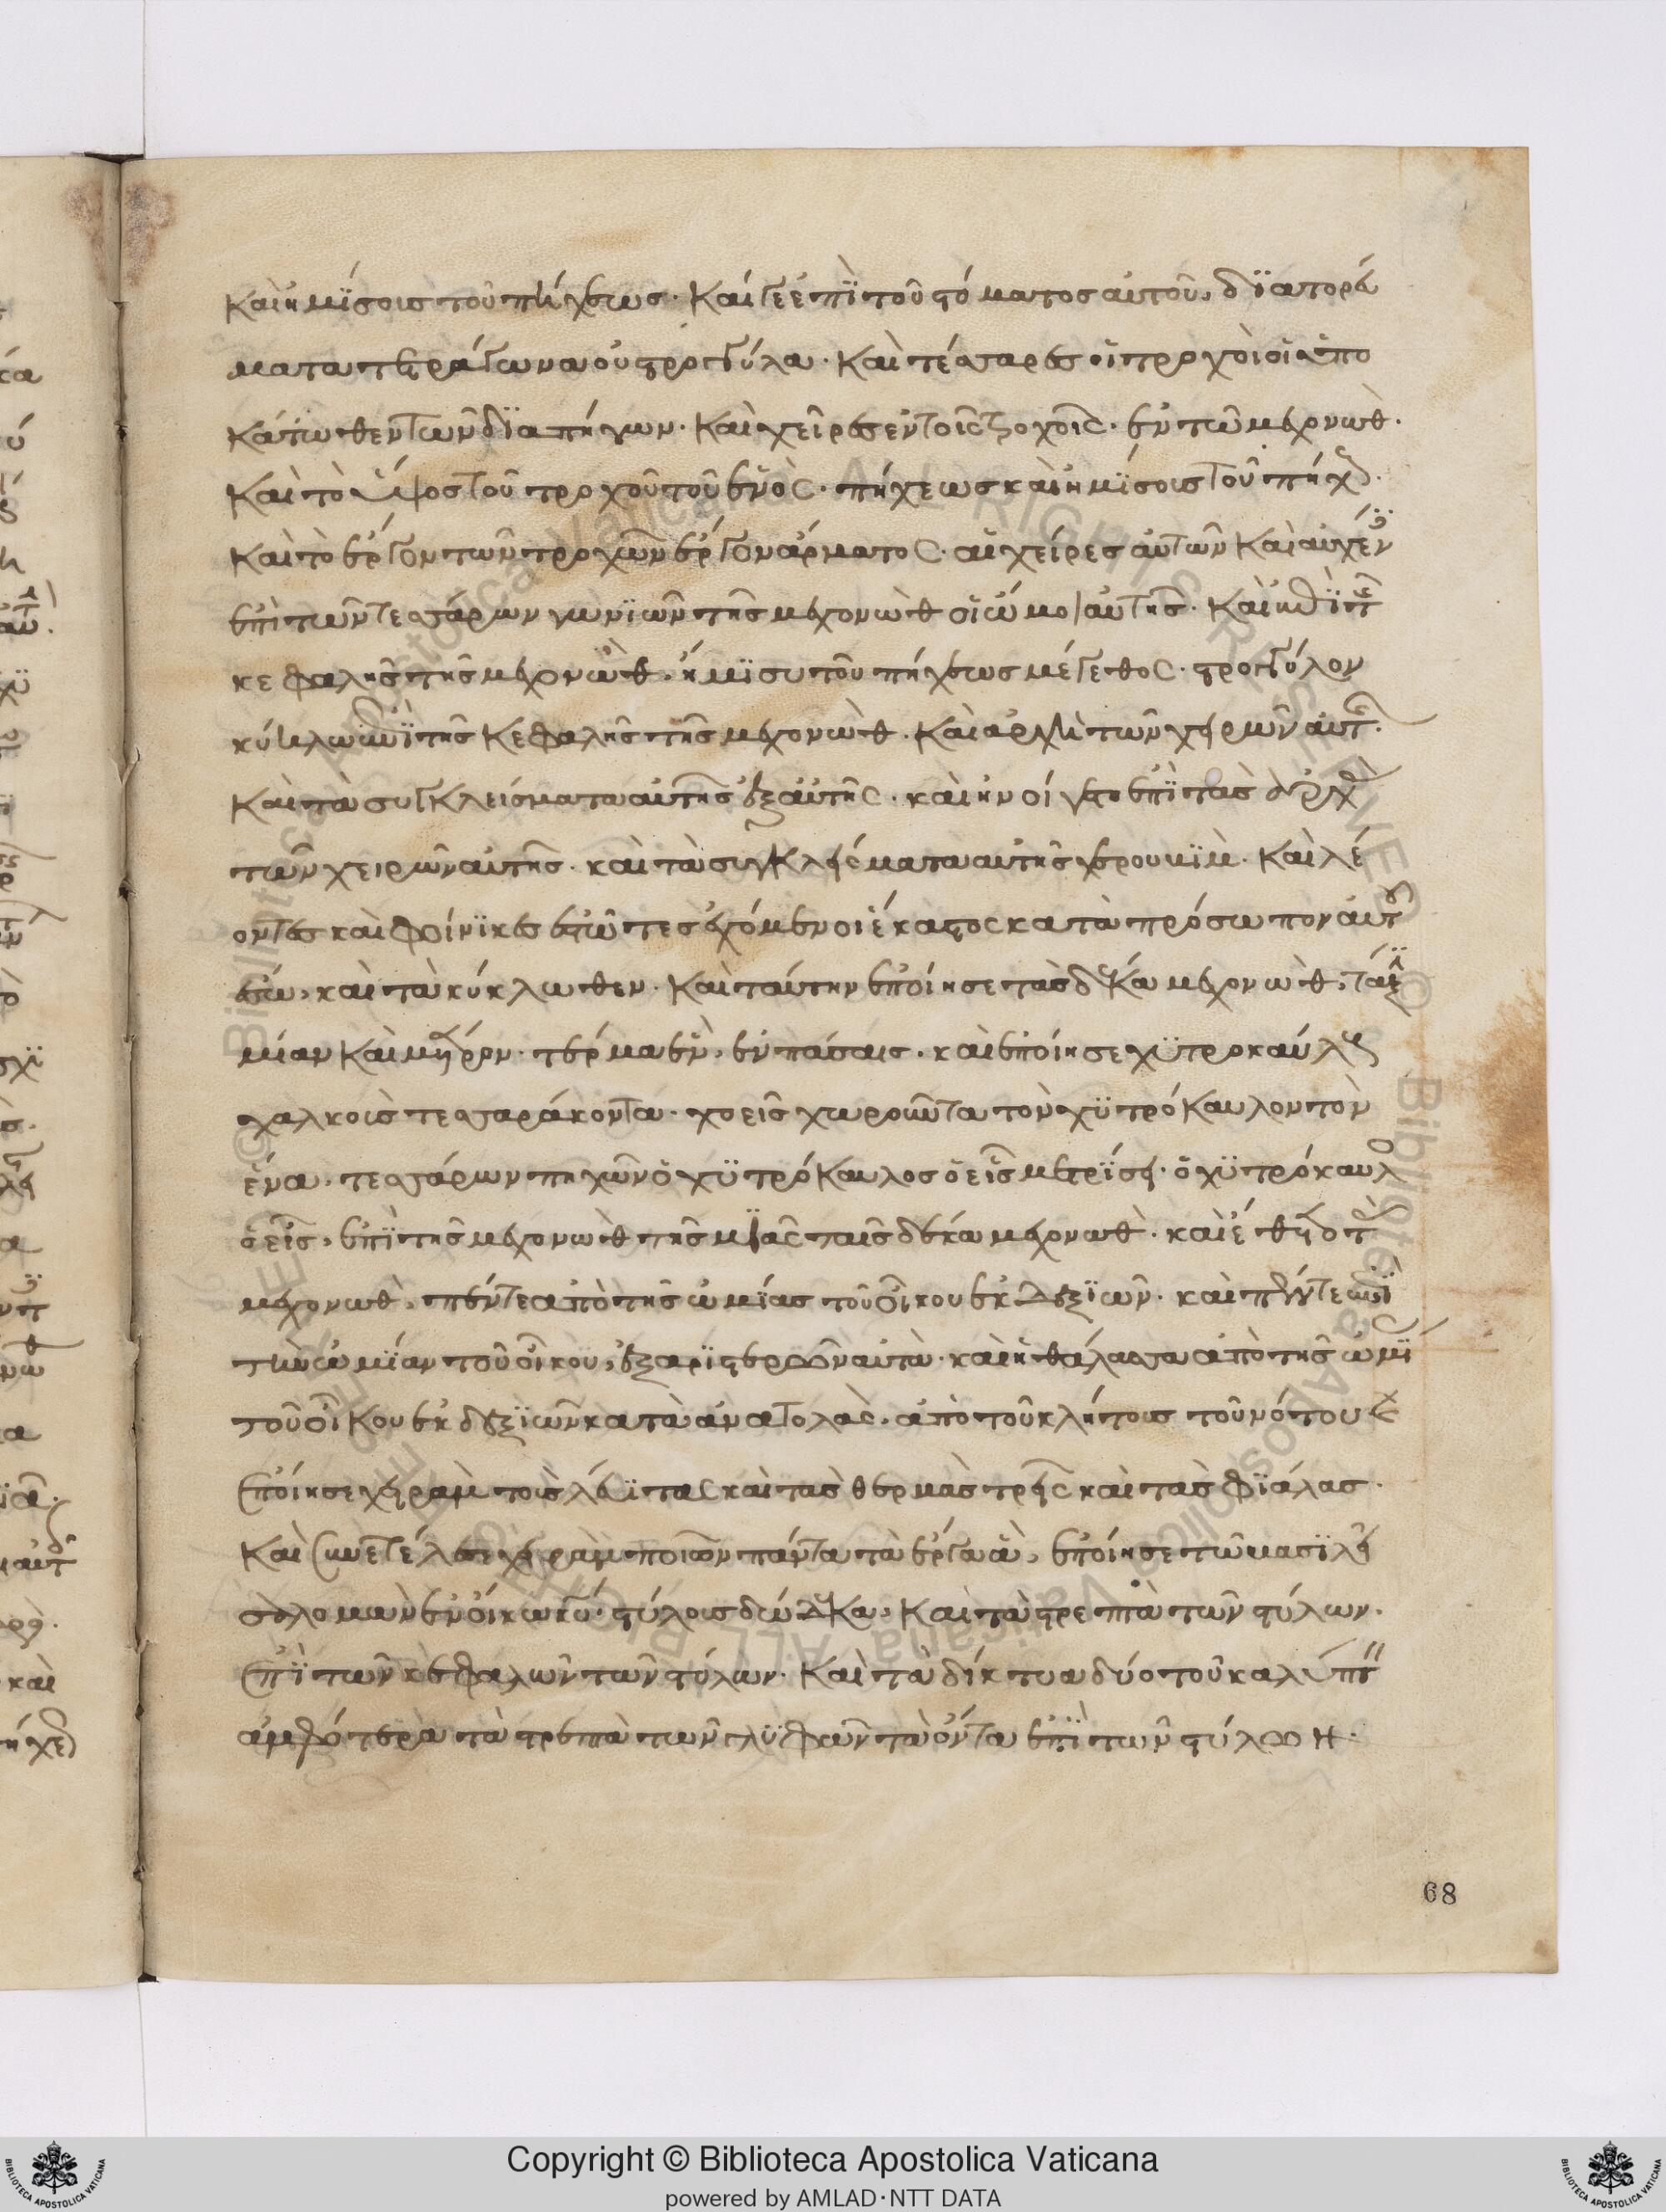 καὶ ἡμίσους τοῦ πήχεως. καί γε ἐπὶ τοῦ στόματος αὐτοῦ, διατορεύ
ματα τετράγωνα οὐ στρογγύλα. καὶ τέσσαρες οἱ τροχοὶ οἱ ἀπο
κάτωθεν τῶν διαπήγων. καὶ χεῖρες ἐν τοῖς τροχοῖς. ἐν τῶ μεχονωθ.
καὶ τὸ ὕψος τοῦ τροχοῦ τοῦ ἑνὸς. πήχεως καὶ ἡμίσους τοῦ πήχε
καὶ τὸ ἔργον τῶν τροχῶν ἔργον ἅρματος. αἱ χεῖρες αὐτῶν καὶ αὐχέν
ἐπὶ τῶν τεσσάρων γωνιῶν τῆς μεχονωθ οἱ ὦμοι αὐτῆς. καὶ ἐπὶ τ
κεφαλῆς τῆς μεχονωθ. ἥμισυ τοῦ πήχεως μέγεθος. στρογγύλον
κύκλω ἐπὶ τῆς κεφαλῆς τῆς μεχονωθ. καὶ ἀρχὴ τῶν χειρῶν αὐτ.
καὶ τὰ συγκλείσματα αὐτῆς ἐξ αὐτῆς. καὶ ἠνοίγετο ἐπὶ τὰς ἀρχ
τῶν χειρῶν αὐτῆς. καὶ τὰ συγκλείσματα αὐτῆς χερουβὶμ. καὶ λέ
οντες καὶ φοίνικες ἑστῶτες ἐχόμενοι ἕκαστος κατὰ πρόσωπον αὐτ
ἔσω, καὶ τὰ κύκλωθεν. καὶ ταύτην ἐποίησε τὰς δέκα μεχονωθ, τάξ
μίαν καὶ μέτρον. τέρμα ἓν, ἐν πάσαις. καὶ ἐποίησε χυτροκαύλ
χαλκοῦς τεσσαράκοντα. χοεῖς χωροῦντα τὸν χυτρόκαυλον τὸν
ἕνα. τεσσάρων πηχῶν ὁ χυτρόκαυλος ὁ εἷς μετρήσει. ὁ χυτρόκαυλ
ὁ εἷς, ἐπὶ τῆς μεχονωθ τῆς μιᾶς ταῖς δέκα μεχονωθ. καὶ ἔθετο τ
μεχονωθ, πέντε ἀπὸ τῆς ὠμίας τοῦ οἴκου ἐκ δεξιῶν. καὶ πέντε ἐπὶ
τὴν ὠμίαν τοῦ οἴκου, ἐξ ἀριστερῶν αὐτὰ. καὶ ἡ θάλασσα ἀπὸ τῆς ὠμί
τοῦ οἴκου ἐκ δεξιῶν κατὰ ἀνατολὰς. ἀπὸ τοῦ κλήτους τοῦ νότου
ἐποίησε χειρὰμ τοὺς λέβητας καὶ τὰς θερμάστρεις καὶ τὰς φιάλας.
καὶ συνετέλεσε χειρὰμ ποιῶν πάντα τὰ ἔργα ἃ, ἐποίησε τῶ βασιλεῖ
σολομὼν ἐν οἴκω κυ. στύλους δώδεκα, καὶ τὰ στρεπτὰ τῶν στύλων.
ἐπὶ τῶν κεφαλῶν τῶν στύλων. καὶ τὰ δίκτυα δύο τοῦ καλύπτ
ἀμφότερα τὰ στρεπτὰ τῶν γλυφῶν τὰ ὄντα ἐπὶ τῶν στύλων.
68
Copyright © Biblioteca Apostolica Vaticana
powered by AMLAD·NTT DATA